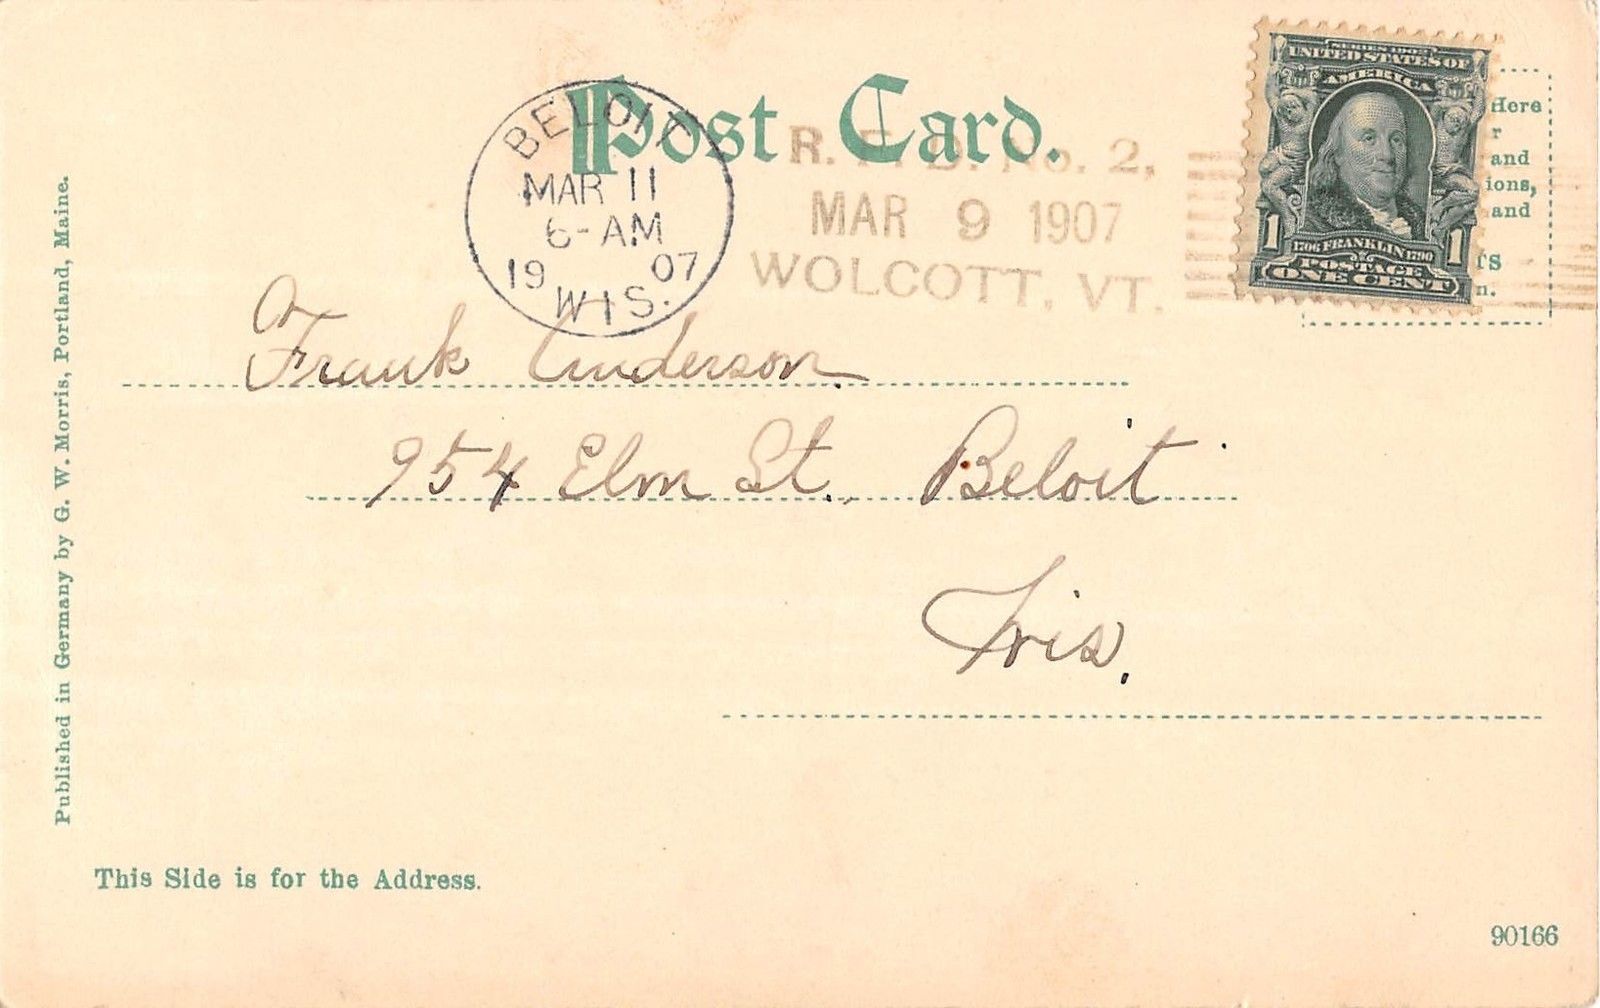 Post Card.
BELOIT
MAR 11
6-AM
19 07
WIS.
R. F. D. No. 2,
MAR 9 1907
WOLCOTT, VT.
SERIES 1902
UNITED STATES OF
AMERICA
1706 FRANKLIN 1790
1 POSTAGE 1
ONE CENT
Here
r
and
ions,
and
rs
n.
Frank Anderson
954 Elm St., Beloit
Wis.
Published in Germany by G. W. Morris, Portland, Maine.
This Side is for the Address.
90166